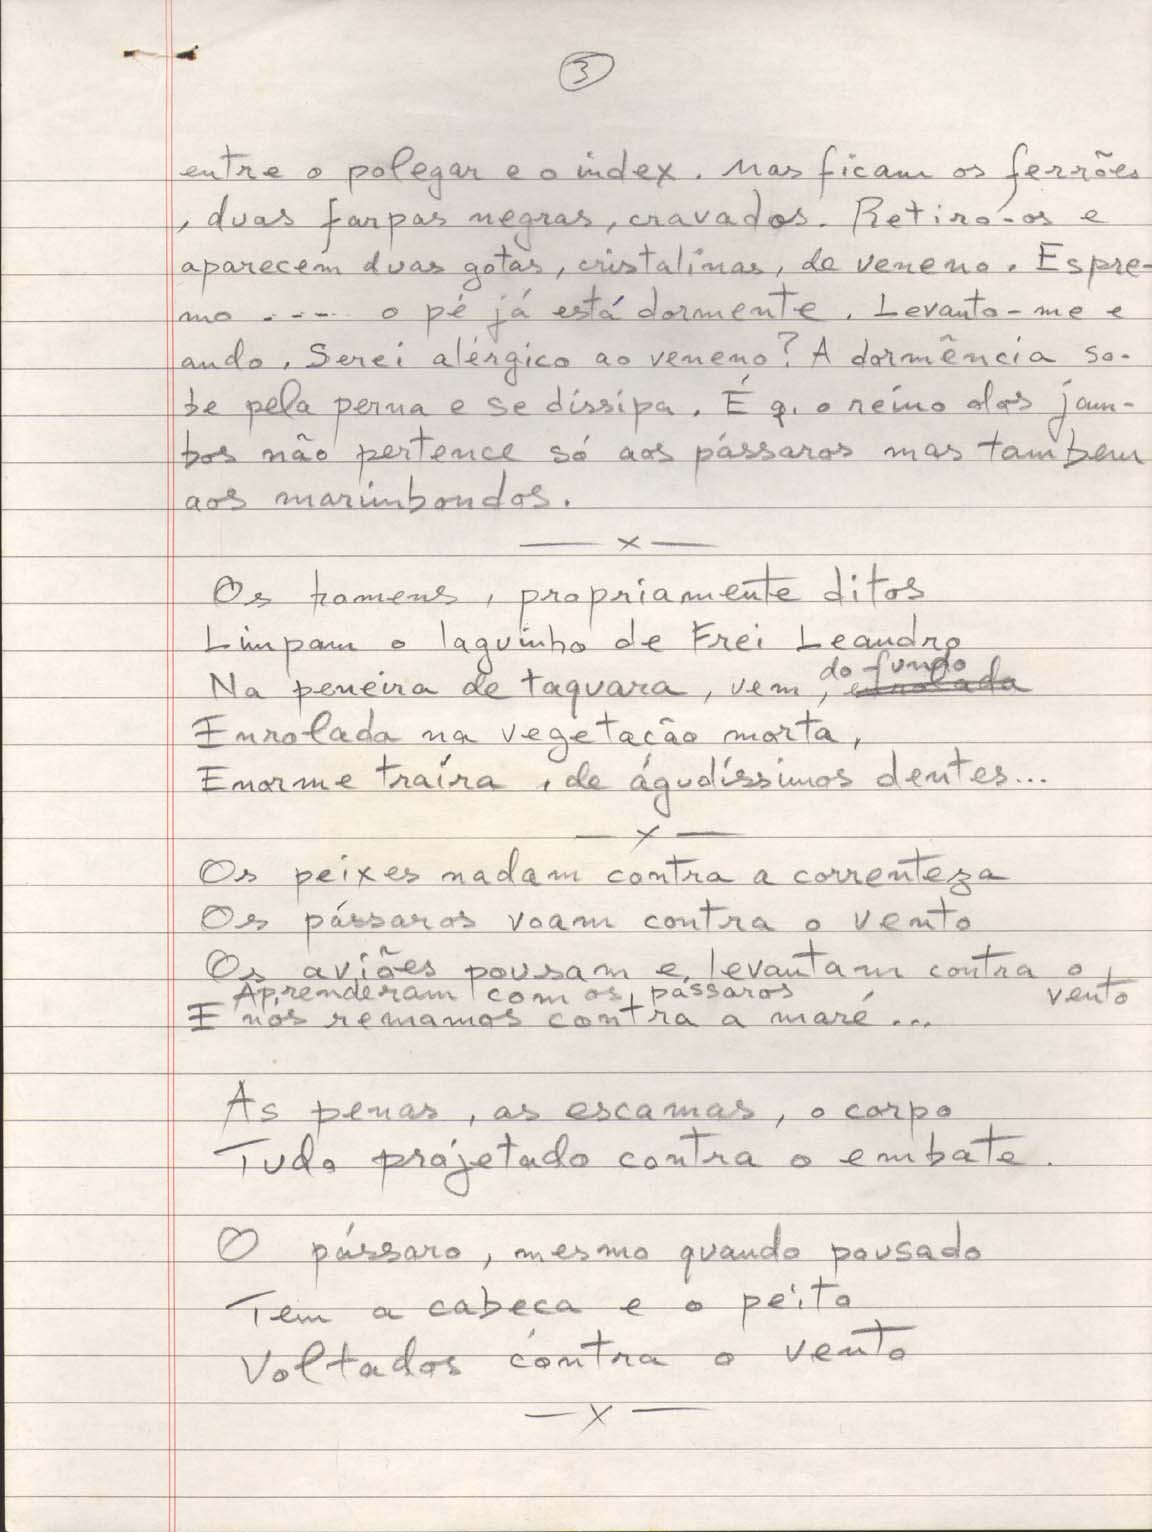 3
entre o polegar e o index. Mas ficam os ferrões
, duas farpas negras, cravados. Retiro-os e
aparecem duas gotas, cristalinas, de veneno. Espre-
mo .--- o pé já está dormente. Levanto-me e
ando. Serei alérgico ao veneno? A dormência so-
be pela perna e se dissipa. É q. o reino dos jam-
bos não pertence só aos pássaros mas tambem
aos marimbondos.
— x —
Os homens, propriamente ditos
Limpam o laguinho de Frei Leandro
do fundo
Na peneira de taquara, vem, enrolada
Enrolada na vegetação morta,
Enorme traíra, de águdíssimos dentes...
— x —
Os peixes nadam contra a correnteza
Os pássaros voam contra o vento
Os aviões pousam e levantam contra o
vento
Aprenderam com os pássaros
E nós remamos contra a maré...
As penas, as escamas, o corpo
Tudo projetado contra o embate.
O pássaro, mesmo quando pousado
Tem a cabeça e o peito
Voltados contra o vento
— x —